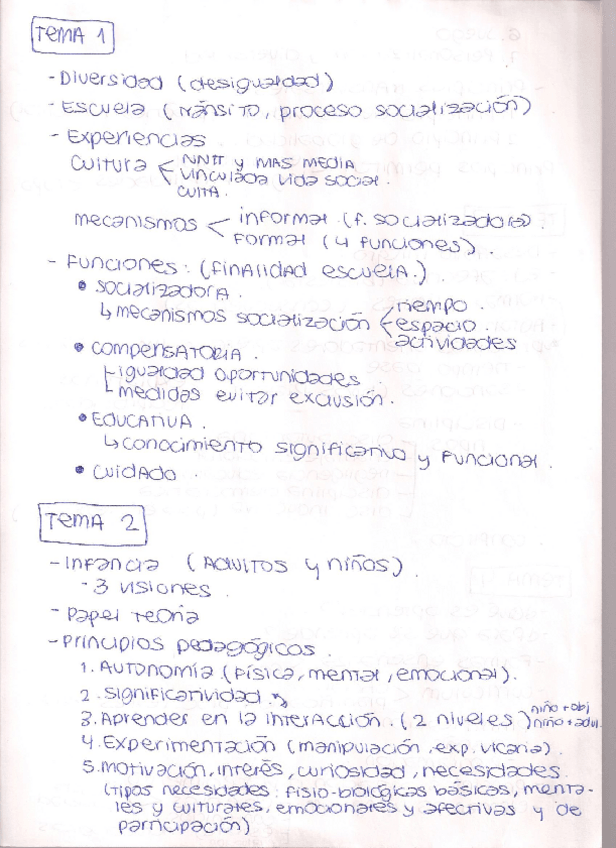 TEMA 1
- Diversidad (desigualdad)
- Escuela (tránsito, proceso socialización)
- Experiencias
cultura < NNTT y MAS MEDIA
VINCULADA VIDA social.
CULTA.
mecanismos < informal (f. socializadora).
Formal (4 funciones).
- Funciones: (FINALIDAD ESCUELA.)
• SOCIALIZADORA.
↳ mecanismos socialización < tiempo.
espacio.
actividades
• COMPENSATORIA.
igualdad oportunidades
medidas evitar exclusión.
• EDUCATIVA.
↳ conocimiento significativo y Funcional.
• CUIDADO.
TEMA 2
- Infancia (ADULTOS y niños).
- 3 visiones.
- Papel Teoría
- Principios pedagógicos.
1. AUTONOMÍA (Física, mental, emocional).
2. Significatividad.
3. Aprender en la interacción (2 niveles) niño + obj
niño + adul.
4. Experimentación (manipulación, exp. vicaria).
5. Motivación, interés, curiosidad, necesidades
(tipos necesidades: fisio-biológicas básicas, menta-
les y culturales, emocionales y afectivas y de
participación)